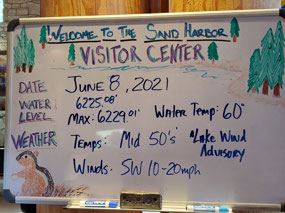 Welcome To The Sand Harbor
VISITOR CENTER
DATE June 8, 2021
WATER LEVEL 6225.08' Max: 6229.01' Water Temp: 60°
WEATHER Temps: Mid 50's *Lake Wind Advisory
Winds: SW 10-20mph